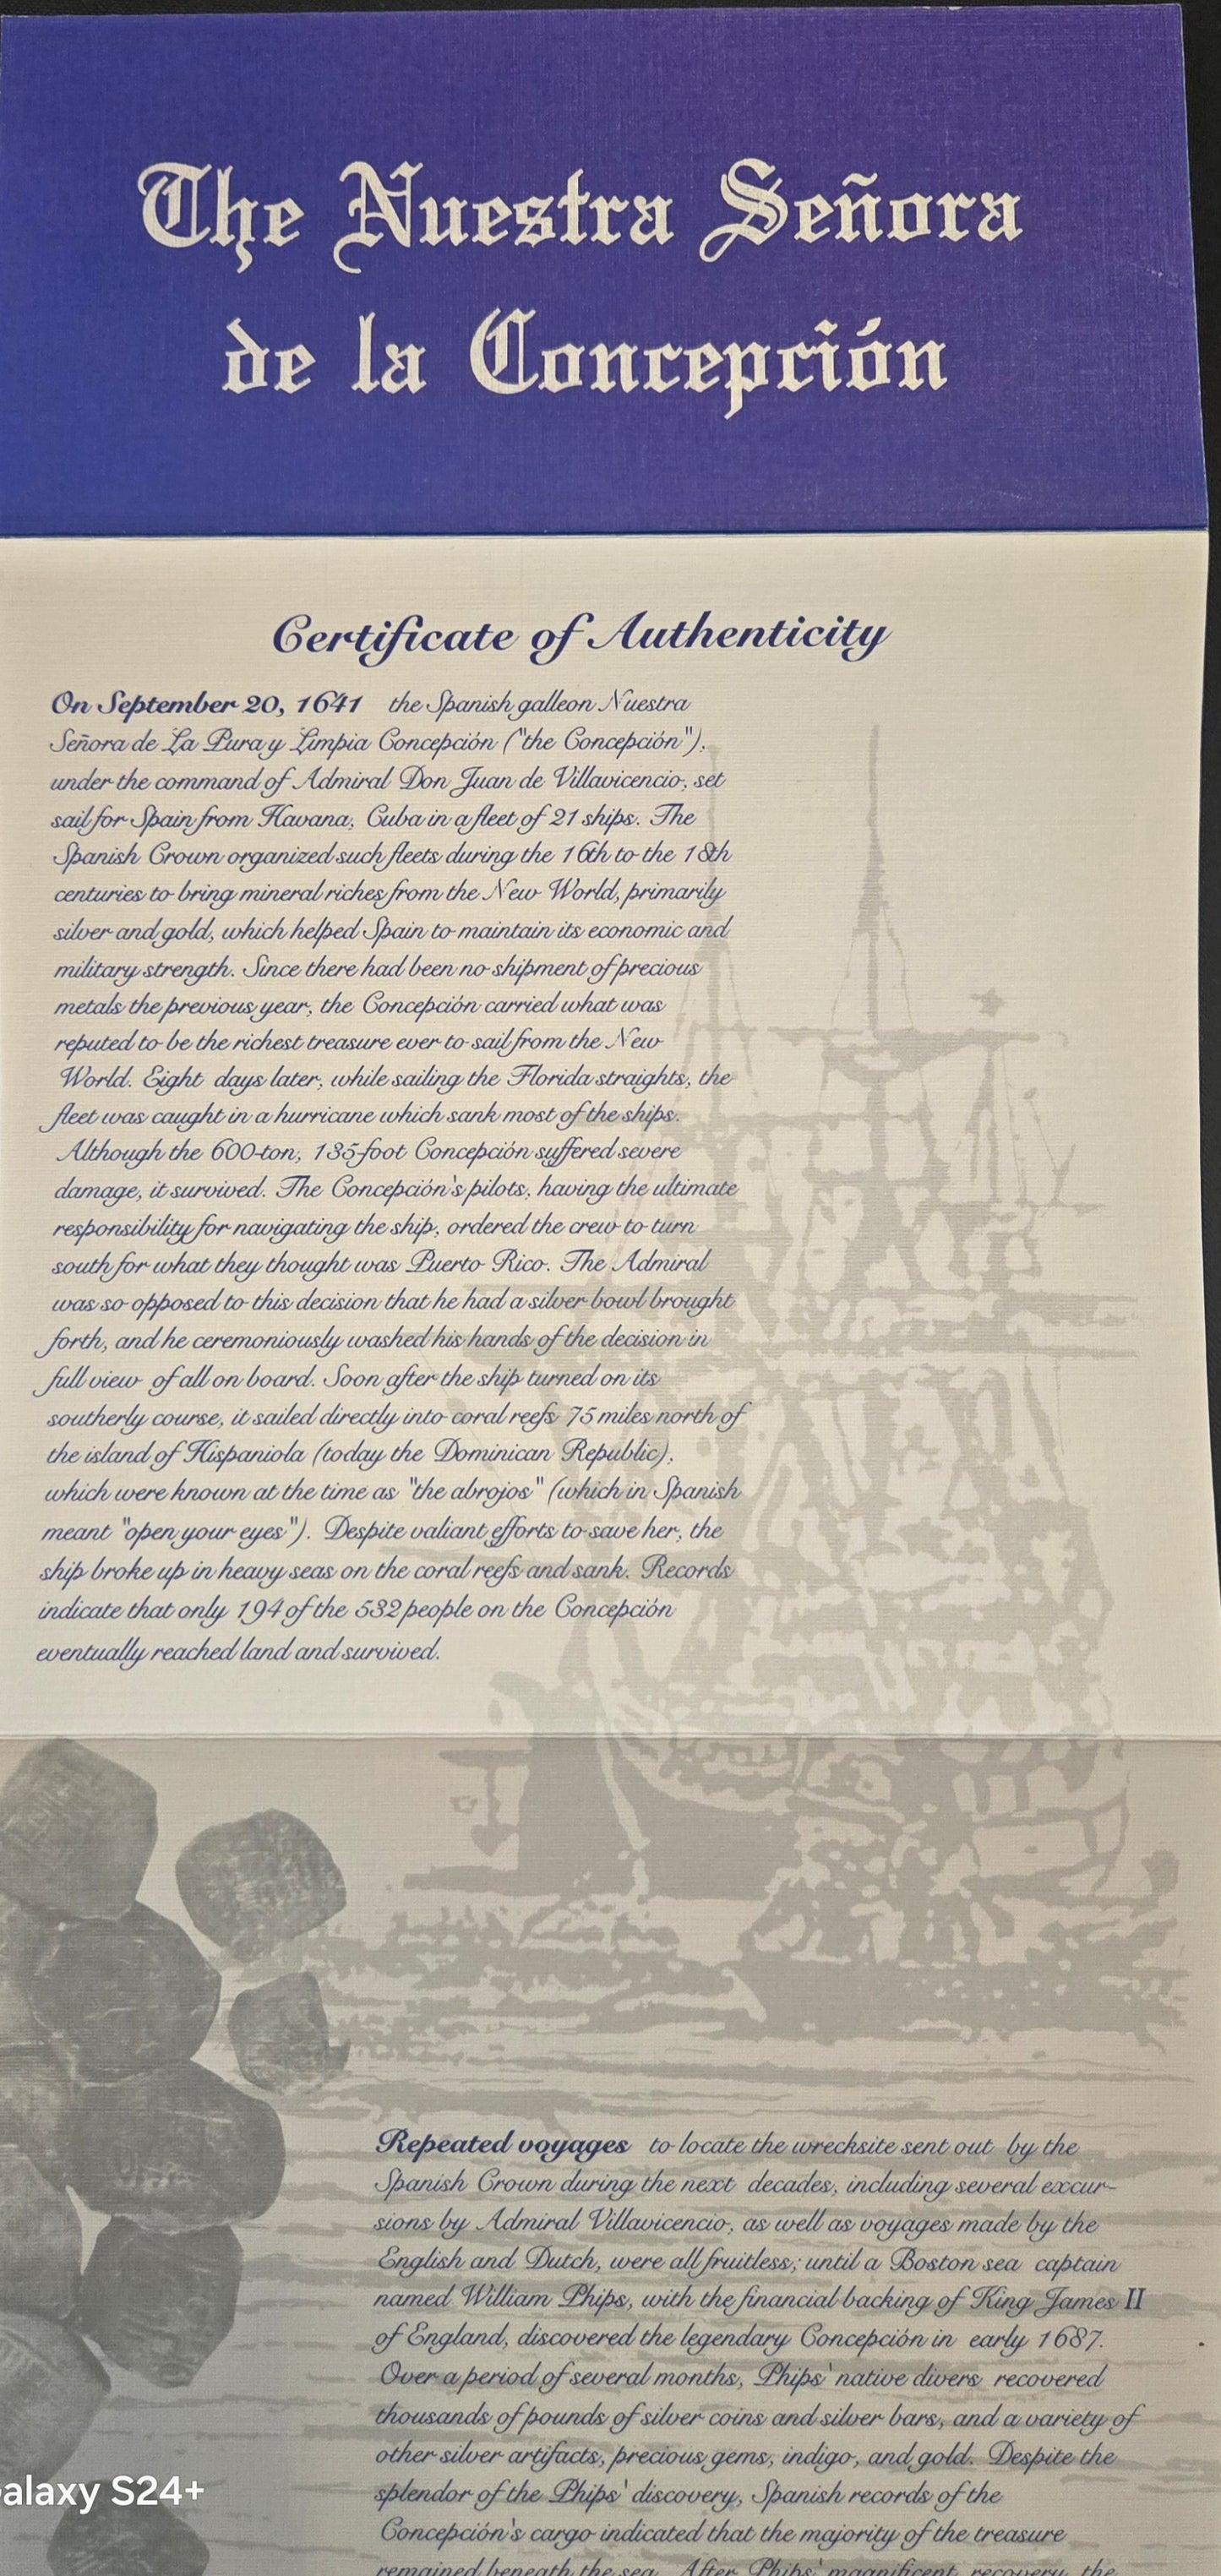 The Nuestra Señora
de la Concepción
Certificate of Authenticity
On September 20, 1641 the Spanish galleon Nuestra
Señora de La Pura y Limpia Concepción ("the Concepción"),
under the command of Admiral Don Juan de Villavicencio, set
sail for Spain from Havana, Cuba in a fleet of 21 ships. The
Spanish Crown organized such fleets during the 16th to the 18th
centuries to bring mineral riches from the New World, primarily
silver and gold, which helped Spain to maintain its economic and
military strength. Since there had been no shipment of precious
metals the previous year, the Concepción carried what was
reputed to be the richest treasure ever to sail from the New
World. Eight days later, while sailing the Florida straights, the
fleet was caught in a hurricane which sank most of the ships.
Although the 600-ton, 135-foot Concepción suffered severe
damage, it survived. The Concepción's pilots, having the ultimate
responsibility for navigating the ship, ordered the crew to turn
south for what they thought was Puerto Rico. The Admiral
was so opposed to this decision that he had a silver bowl brought
forth, and he ceremoniously washed his hands of the decision in
full view of all on board. Soon after the ship turned on its
southerly course, it sailed directly into coral reefs 75 miles north of
the island of Hispaniola (today the Dominican Republic),
which were known at the time as "the abrojos" (which in Spanish
meant "open your eyes"). Despite valiant efforts to save her, the
ship broke up in heavy seas on the coral reefs and sank. Records
indicate that only 194 of the 532 people on the Concepción
eventually reached land and survived.
Repeated voyages to locate the wrecksite sent out by the
Spanish Crown during the next decades, including several excur-
sions by Admiral Villavicencio, as well as voyages made by the
English and Dutch, were all fruitless; until a Boston sea captain
named William Phips, with the financial backing of King James II
of England, discovered the legendary Concepción in early 1687.
Over a period of several months, Phips' native divers recovered
thousands of pounds of silver coins and silver bars, and a variety of
other silver artifacts, precious gems, indigo, and gold. Despite the
splendor of the Phips' discovery, Spanish records of the
Concepción's cargo indicated that the majority of the treasure
remained beneath the sea. After Phips' magnificent recovery, the
alaxy S24+